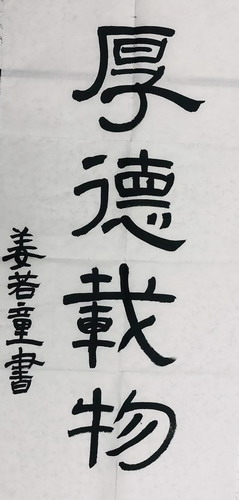 厚德載物
姜若童書